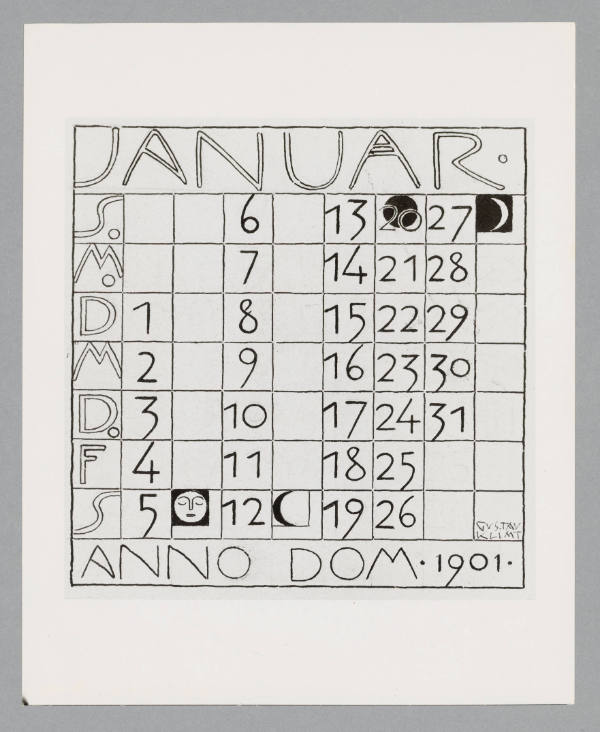 JANUAR.
S. 6 13 20 27
M. 7 14 21 28
D 1 8 15 22 29
M 2 9 16 23 30
D. 3 10 17 24 31
F 4 11 18 25
S 5 12 19 26
GUSTAV
KLIMT
ANNO DOM·1901·